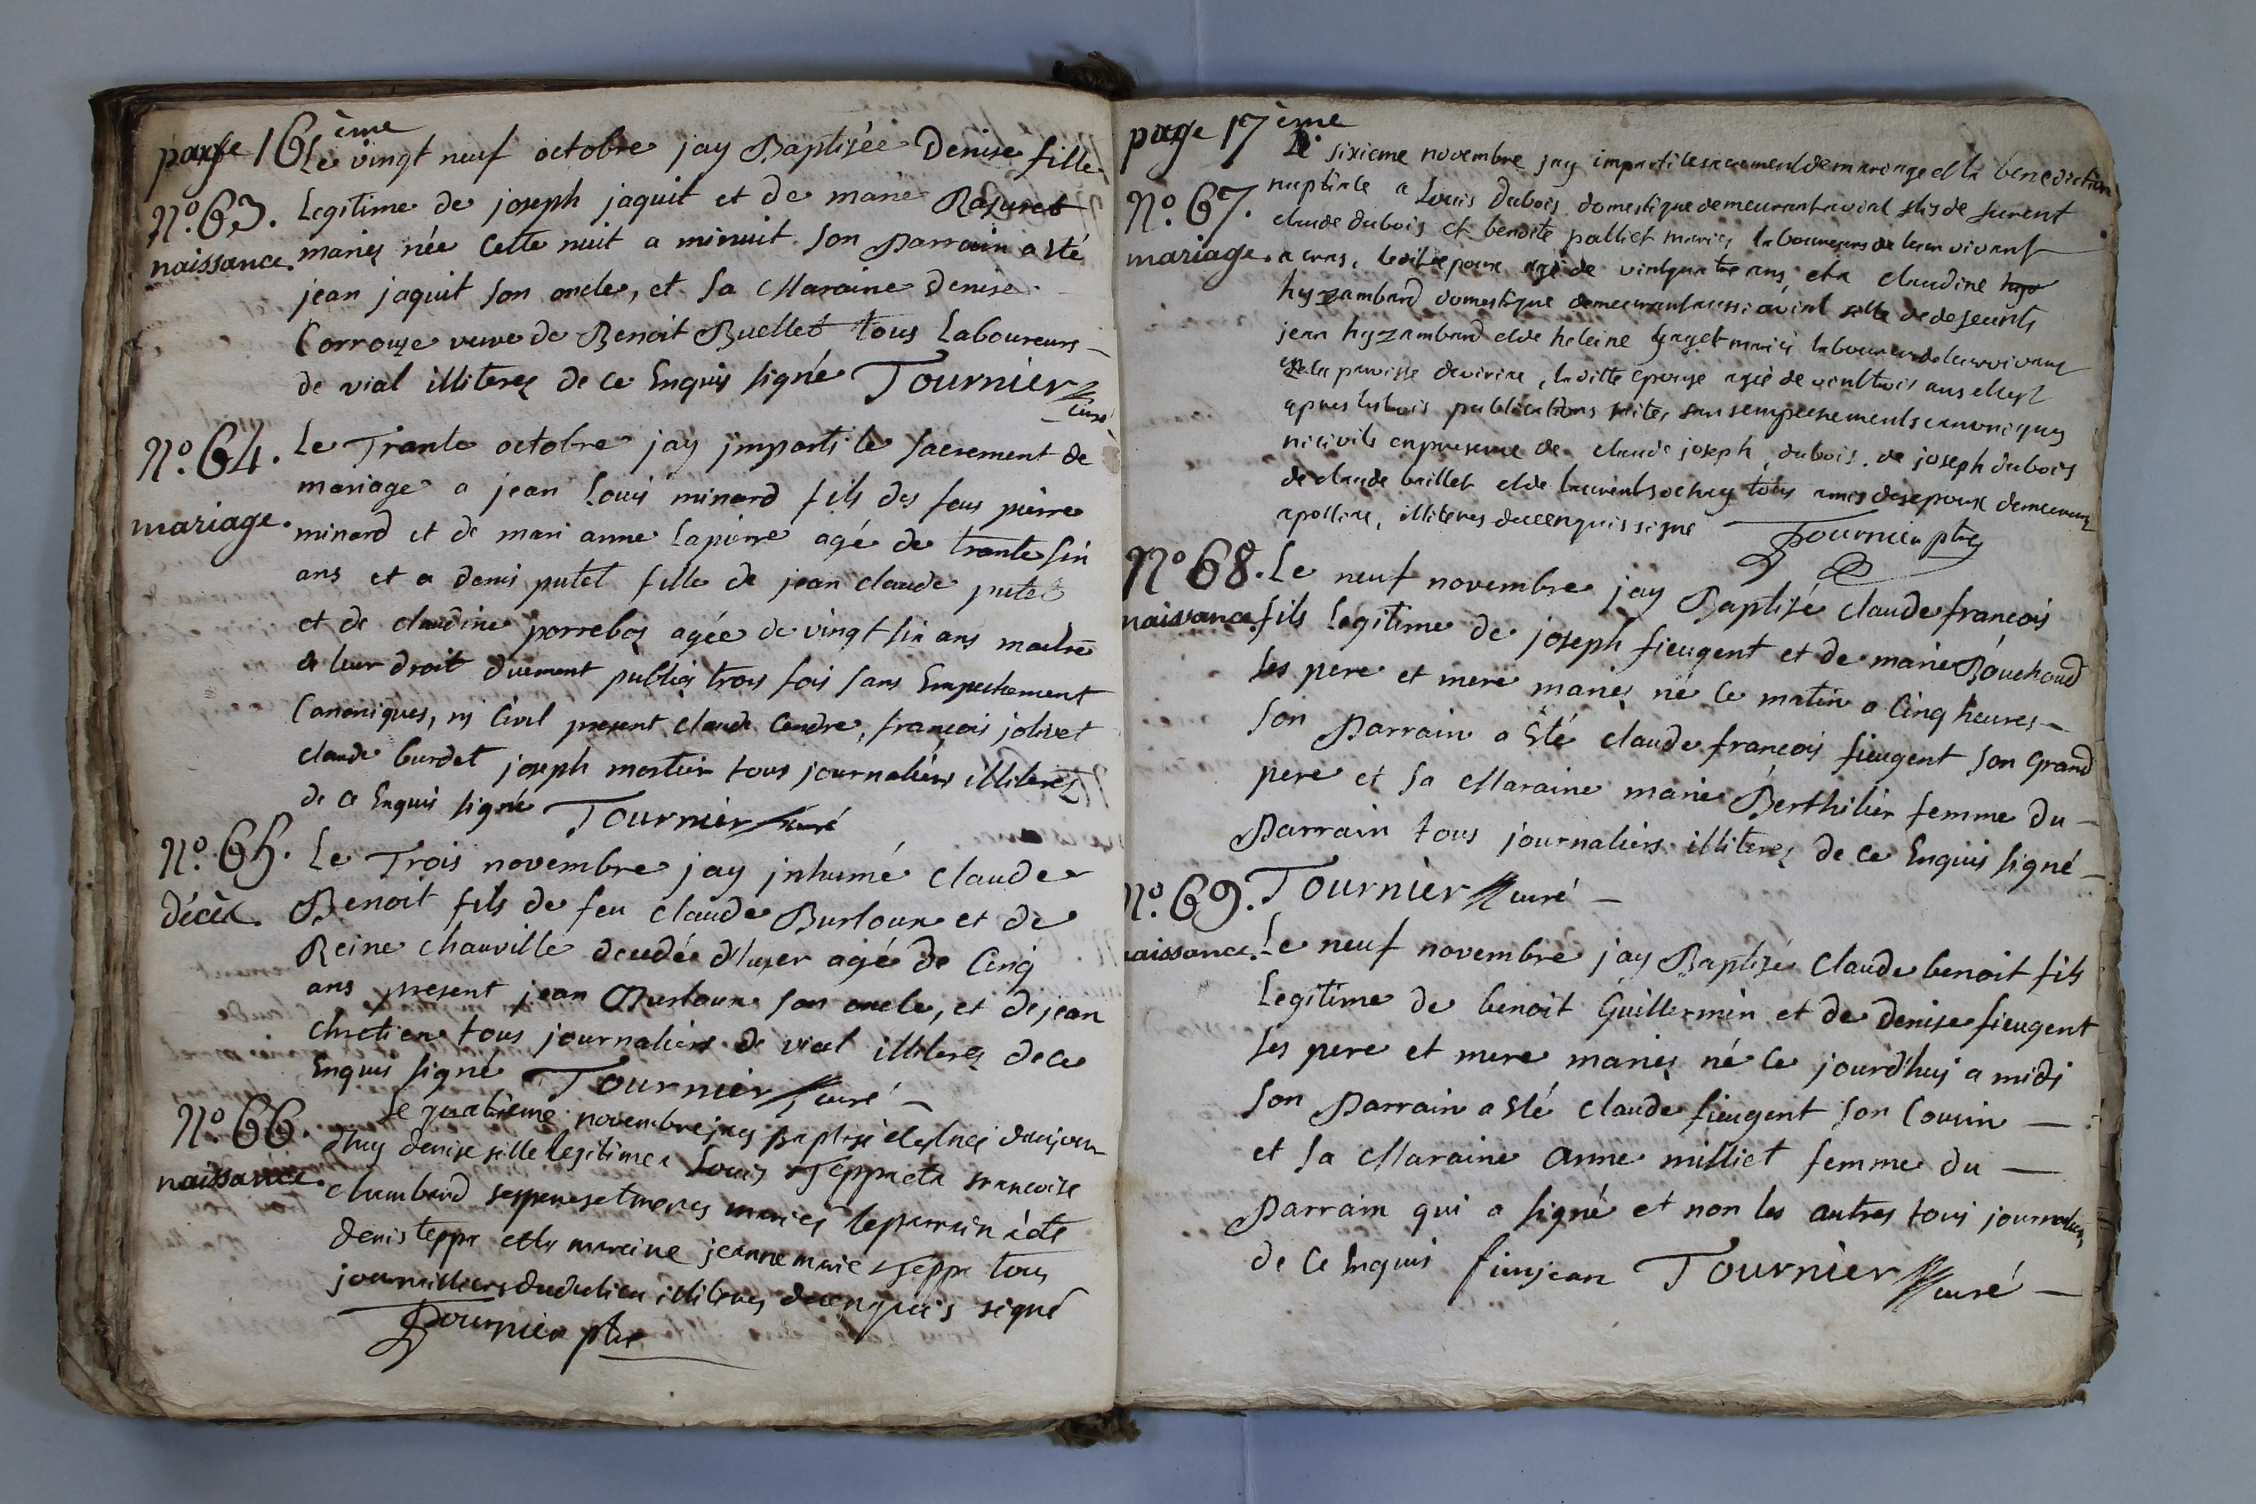 page 16ème
Le vingt neuf octobre jay Baptisée Denise fille
N.º 63.
Legitime de joseph jaquit et de marie
naissance.
mariés née cette nuit a minuit son Parrain a esté
jean jaquit son oncle, et sa Maraine denise
Corrouze veuve de Benoit Buellet tous Laboureurs
de vial illiteres de ce Enquis signé Tournier
curé
N.º 64.
Le Trante octobre jay imparti le sacrement de
mariage a jean Louis minard fils des feus pierre
mariage.
minard et de mari anne Lapierre agé de trante sin
ans et a denis putet fille de jean claude putet
et de claudine agée de vingt sin ans
de leur droit duement publiés trois fois sans Empechement
Canoniques, ny Civil present claude Cendre, françois jolivet
claude burdet joseph mortier tous journaliers illiteres
de ce Enquis signé Tournier curé
N.º 65.
Le Trois novembre jay inhumé claude
décès.
Benoit fils de feu claude Burtoux et de
Reine chauville decedée d'hyer agé de Cinq
ans present jean Burtoux son oncle, et de jean
chretien tous journaliers de vial illiteres de ce
Enquis signé Tournier curé
N.º 66.
le quatrieme novembre jay Baptisé
dhuy denise fille legitime a Louis Teppa et a francoise
naissance.
chambard ses peres et meres mariés le parrain a été
denis teppa et la maraine jeanne marie Teppa tous
journalliers dudulieu illiteres de ce enquis signé
Tournier ptre
page 17ème
Le sixieme novembre jay imparti le sacrement de mariage et la benediction
N.º 67.
nuptiale a Louis Dubois domestique demeurant a vial fils de
claude dubois et benoite palliet mariés laboureurs de leur vivant
mariage.
a cras, ledit epoux agé de vintquatre ans et a claudine
hyzambard domestique demeurant aussi a vial fille de
jean hyzambard et de heleine mariés laboureur de leur vivant
de la paroisse de viriat, laditte epouse agée de vinttrois ans
apres les trois publications faites sans empechements canoniques
ni civils en presence de claude joseph dubois, de joseph dubois
de claude baillet et de laurent tous amis des epoux demeurant
a polliat, illiteres de ce enquis signé Tournier ptre
Nº 68.
Le neuf novembre jay Baptisé claude françois
naissance.
fils Legitime de joseph fieugent et de marie Bouchoud
ses pere et mere mariés né ce matin a Cinq heures
son Parrain a Esté claude françois fieugent son grand
pere et sa Maraine marie Berthilier femme du
Parrain tous journaliers illiteres de ce Enquis signé
Tournier curé
Nº. 69.
naissance.
Le neuf novembre jay Baptisé Claude benoit fils
Legitime de benoit Guillermin et de denise fieugent
ses pere et mere mariés né ce jourd'huy a midi
son Parrain a Esté claude fieugent son Cousin
et sa Maraine anne milliet femme du
Parrain qui a signé et non les autres tous journaliers
de ce Enquis fieugean Tournier curé